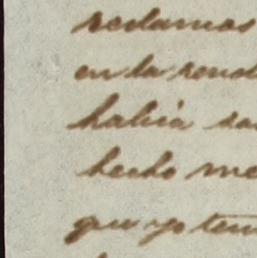 reclamos
en la
habia
hecho me
que yo ten